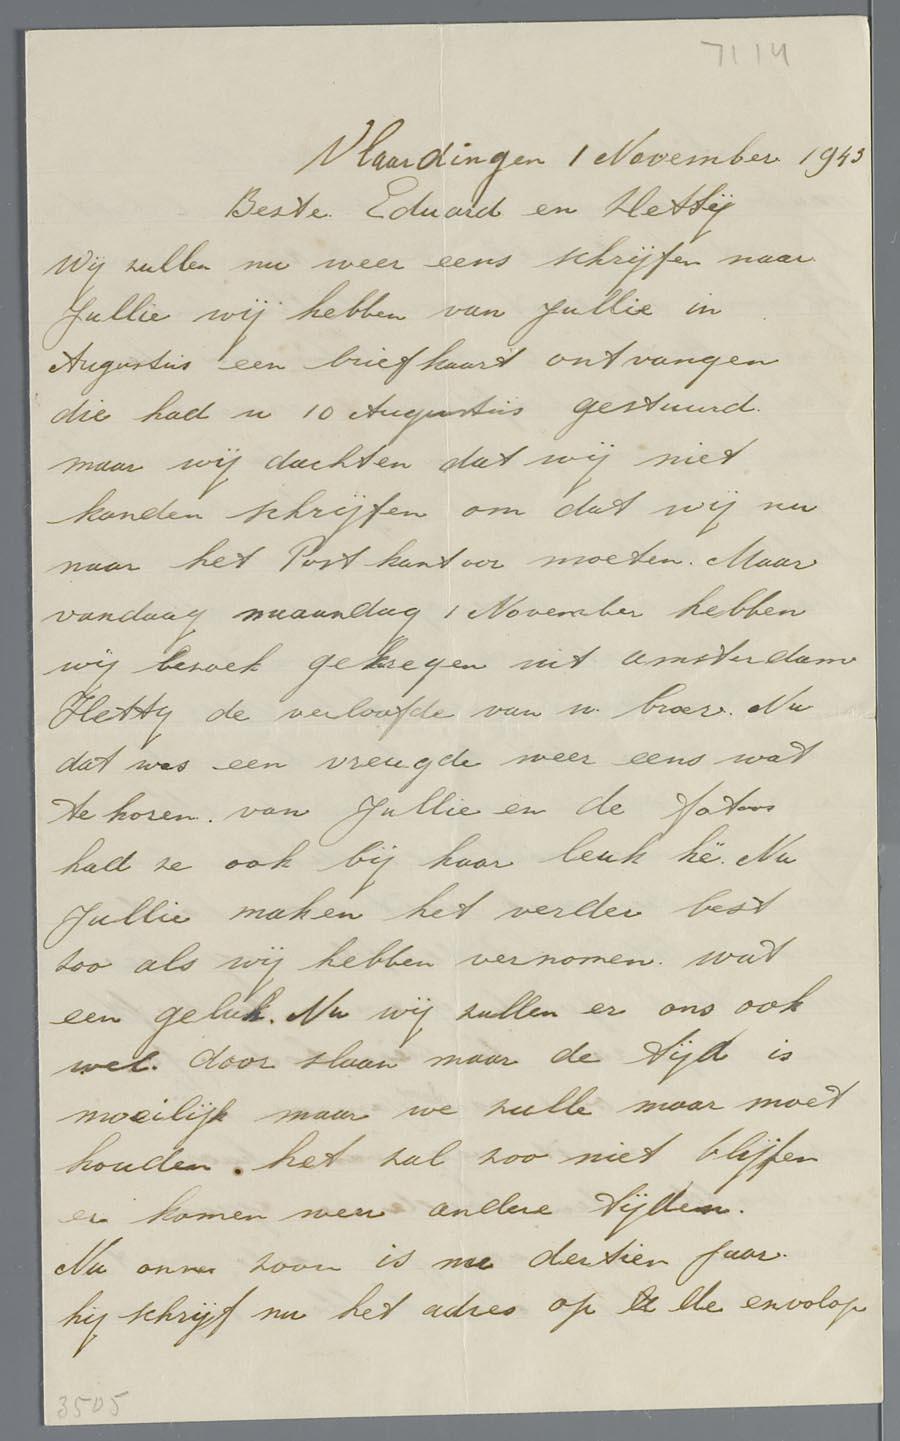 7114
Vlaardingen 1 November 1943
Beste. Eduard en Hettÿ
Wij zullen nu weer eens schrijfen naar
Jullie wij hebben van Jullie in
Augustus een briefkaart ontvangen
die had u 10 Augustus gestuurd.
maar wij dachten dat wij niet
konden schrijfen om dat wij nu
naar het Post kantoor moeten. Maar
vandaag maandag 1 November hebben
wij bezoek gekregen uit amsterdam
Hetty de verloofde van u. broer. Nu
dat was een vreugde weer eens wat
te horen. van Jullie en de fotoos
had ze ook bij haar leuk hë. Nu
Jullie maken het verder best
zoo als wij hebben vernomen. wat
een geluk. Nu wij zullen er ons ook
wel. door slaan maar de tijd is
moeilijk maar we zulle maar moet
houden. het zal zoo niet blijfen
er komen weer andere tijden.
Nu onze zoon is nu dertien Jaar.
hij schrijf nu het adres op de envolop
3505